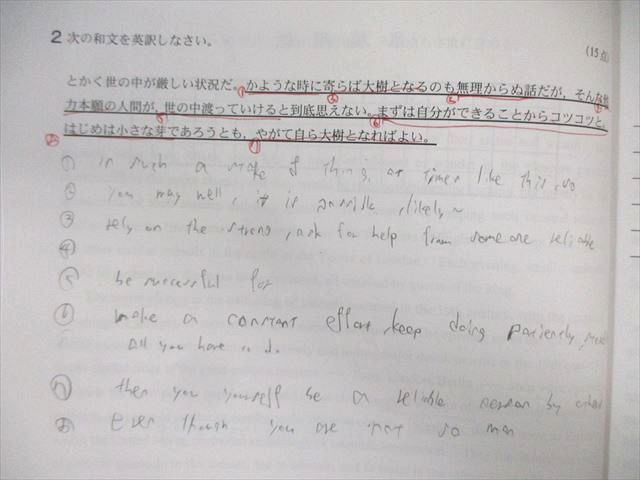 2 次の和文を英訳しなさい。
(15点)
とかく世の中が厳しい状況だ。かような時に寄らば大樹となるのも無理からぬ話だが，そんな他
力本願の人間が，世の中渡っていけると到底思えない。まずは自分ができることからコツコツと，
はじめは小さな芽であろうとも，やがて自ら大樹となればよい。
① in such a state of things, at times like this, so
② you may well, it is possible, likely ~
③ rely on the strong, ask for help from someone reliable
④
⑤ be successful for
⑥ make a constant effort, keep doing patiently,
All you have to do
⑦ then you yourself be a reliable person by
⑧ Even though you are not so